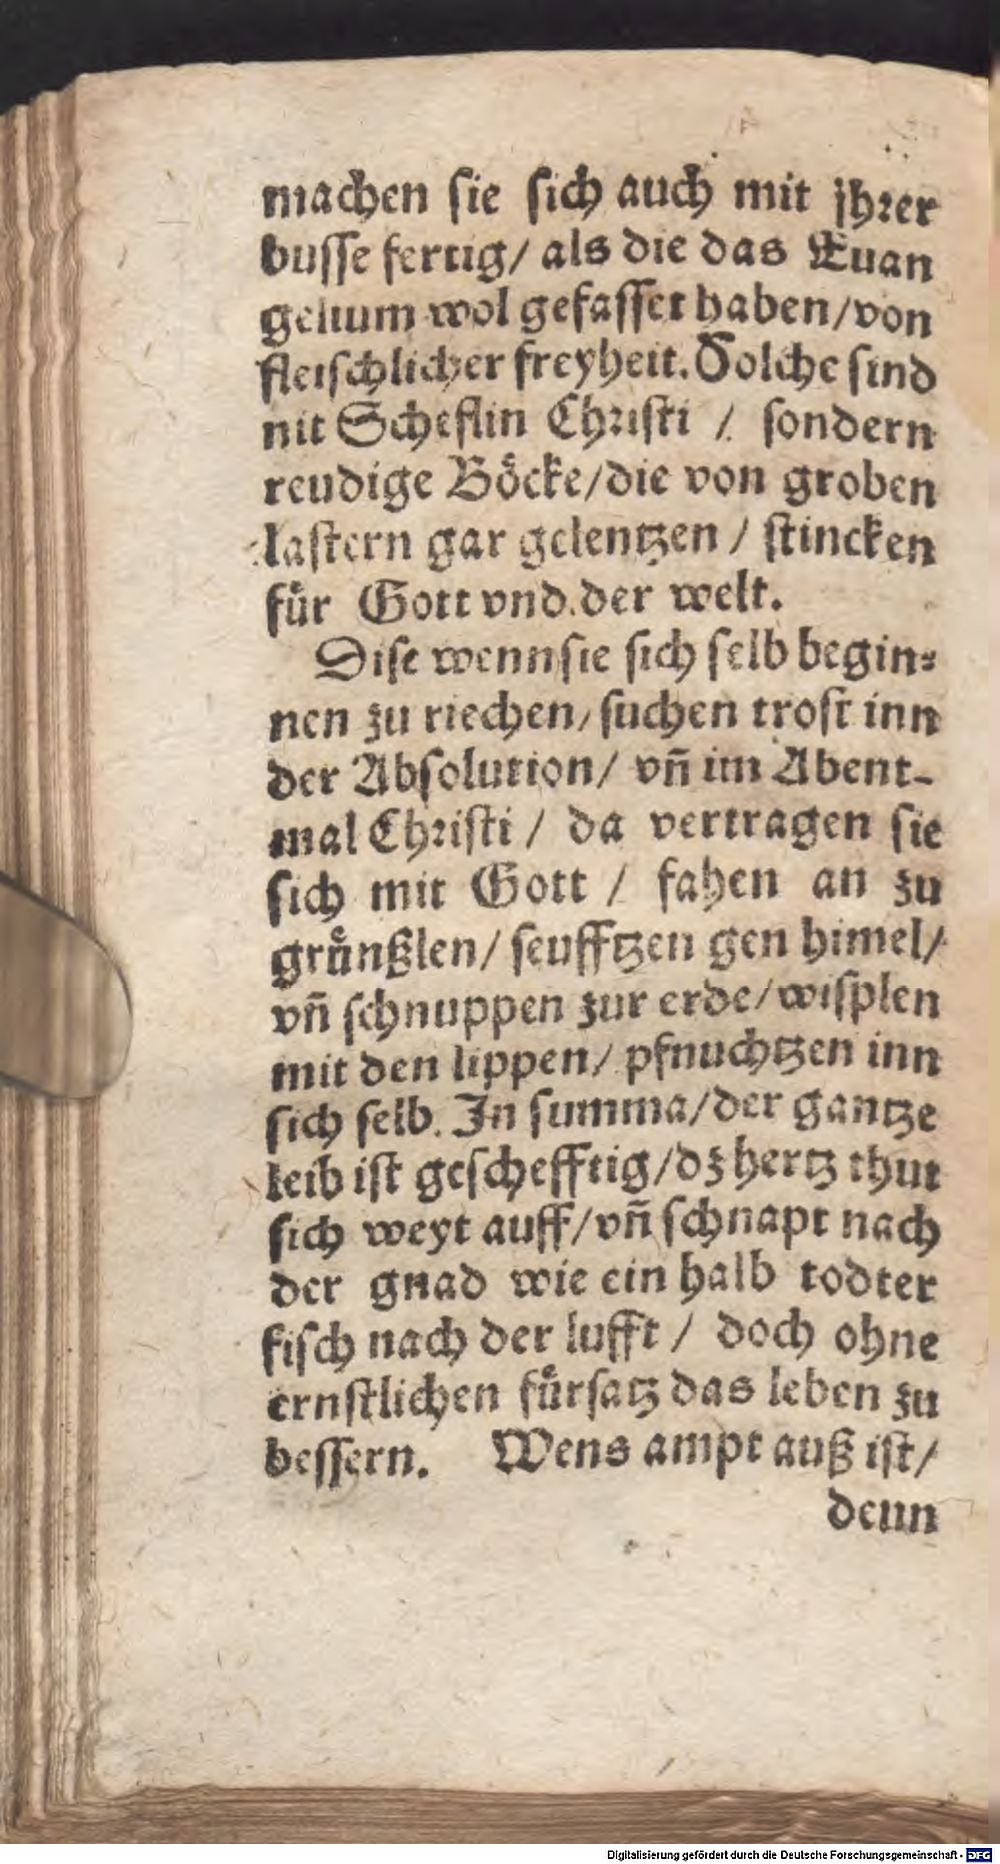 machen sie sich auch mit jhrer
busse fertig/ als die das Euan
gelium wol gefasset haben/von
fleischlicher freyheit. Solche sind
nit Scheflin Christi / sondern
reudige Boͤcke/die von groben
lastern gar gelentzen / stincken
fuͤr Gott vnd der welt.
Dise wenn sie sich selb begin⸗
nen zu riechen/ suchen trost inn
der Absolution/ vñ im Abent-
mal Christi / da vertragen sie
sich mit Gott / fahen an zu
gruͤnßlen/ seufftzen gen himel/
vñ schnuppen zur erde/wisplen
mit den lippen/ pfnuchtzen inn
sich selb. In summa/der gantze
leib ist geschefftig/dz hertz thut
sich weyt auff/vñ schnapt nach
der gnad wie ein halb todter
fisch nach der lufft / doch ohne
ernstlichen fuͤrsatz das leben zu
bessern. Wens ampt auß ist/
denn
Digitalisierung gefördert durch die Deutsche Forschungsgemeinschaft - DFG